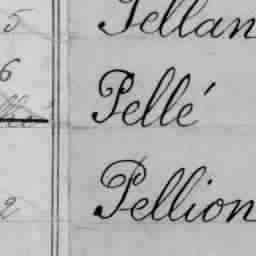 5 Pellan
6 Pellé
2 Pellion